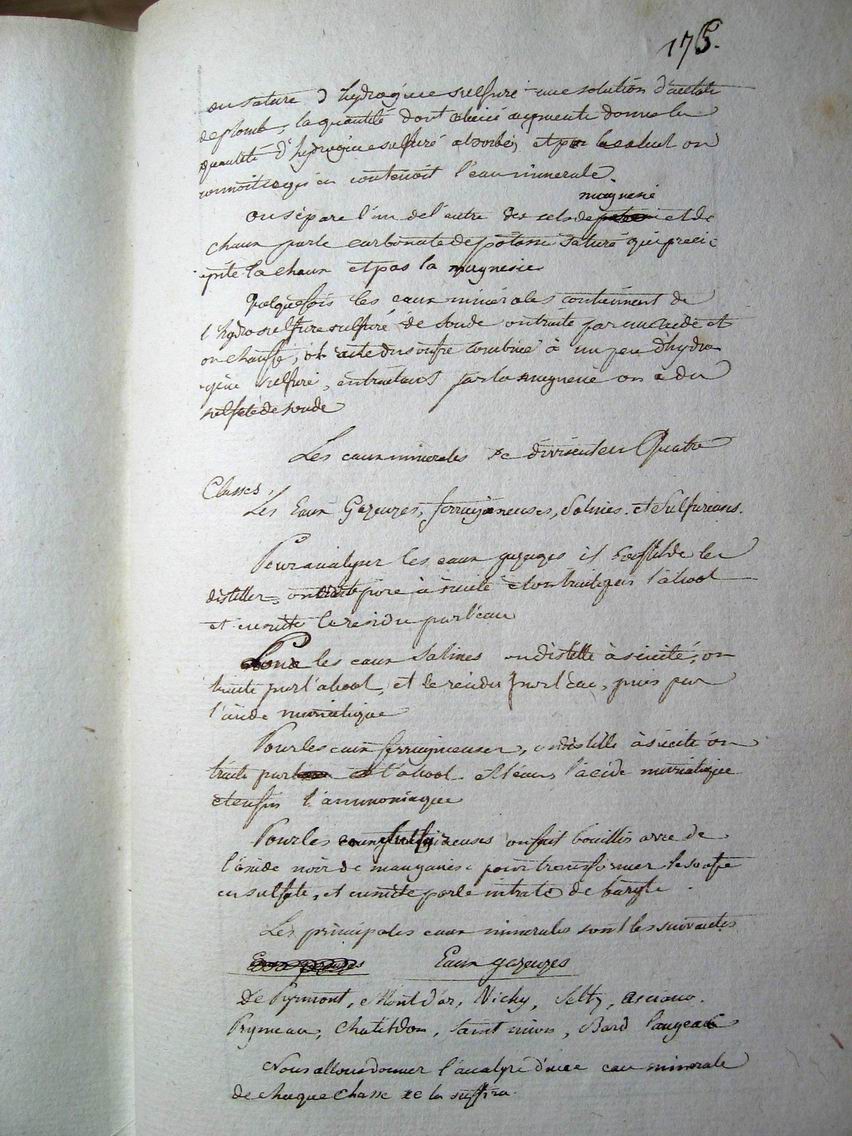 175.
on sature d'hydrogène sulfuré une solution d'acetate
de plomb, la quantité dont celui ci augmente donne la
quantité d'hydrogène sulfuré absorbé, et par le calcul on
connoit ce qu'en contenoit l'eau minerale.
magnesie
on sépare l'un de l'autre les sels de et de
chaux par le carbonate de potasse saturé qui preci-
-pite la chaux et pas la magnesie
Quelquefois les eaux minérales contiennent de
l'hydrosulfure sulfuré de soude on traite par un acide et
on chauffe, il reste du soufre combiné à un peu d'hydro
-gène sulfuré, en traitant par la magnesie on a du
sulfate de soude
Les eaux minerales se divisent en Quatre
Classes.
Les Eaux Gazeuzes, ferrugineuses, Salines. et Sulfureuses.
Pour analyser les eaux gazeuzes il suffit de les
distiller, on évapore à siccité et on traite par l'alcool
et ensuite le residu par l'eau
Pour les eaux Salines on distille à siccité, on
traite par l'alcool, et le residu par l'eau, puis par
l'acide muriatique
Pour les eaux ferrugineuses, on distille à siccité on
traite par l'alcool et l'eau, l'acide muriatique
et enfin l'ammoniaque
Pour les eaux sulfureuses on fait bouillir avec de
l'oxide noir de manganèse pour transformer le soufre
en sulfate, et ensuite par le nitrate de baryte.
Les principales eaux minerales sont les suivantes
Eaux gazeuzes
De Pyrmont, Mont d'or, Vichy, Seltz,
Chateldon, Saint mion, Bard Langeac
Nous allons donner l'analyse d'une eau minerale
de chaque Classe ce la suffira.